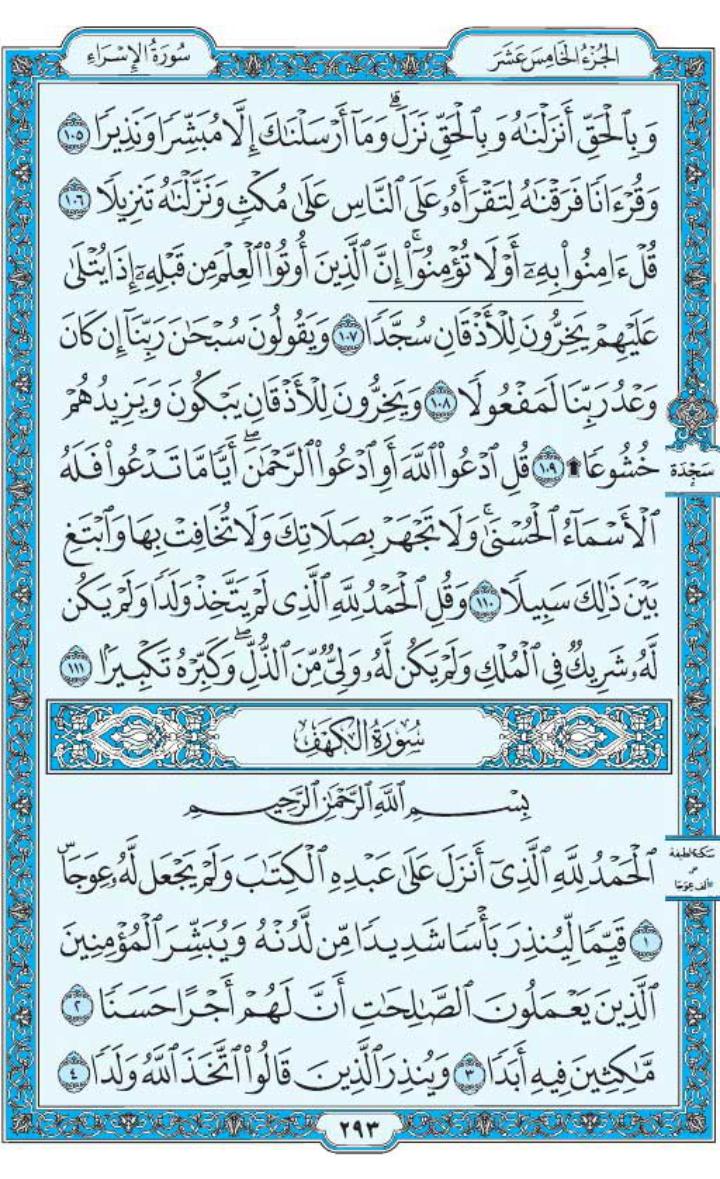 سُورَةُ الإِسْرَاءِ
الجُزْءُ الخَامِسَ عَشَرَ
وَبِٱلْحَقِّ أَنزَلْنَٰهُ وَبِٱلْحَقِّ نَزَلَ ۗ وَمَآ أَرْسَلْنَٰكَ إِلَّا مُبَشِّرًا وَنَذِيرًا ١٠٥
وَقُرْءَانًا فَرَقْنَٰهُ لِتَقْرَأَهُۥ عَلَى ٱلنَّاسِ عَلَىٰ مُكْثٍ وَنَزَّلْنَٰهُ تَنزِيلًا ١٠٦
قُلْ ءَامِنُوا۟ بِهِۦٓ أَوْ لَا تُؤْمِنُوٓا۟ ۚ إِنَّ ٱلَّذِينَ أُوتُوا۟ ٱلْعِلْمَ مِن قَبْلِهِۦٓ إِذَا يُتْلَىٰ
عَلَيْهِمْ يَخِرُّونَ لِلْأَذْقَانِ سُجَّدًا ١٠٧ وَيَقُولُونَ سُبْحَٰنَ رَبِّنَآ إِن كَانَ
وَعْدُ رَبِّنَا لَمَفْعُولًا ١٠٨ وَيَخِرُّونَ لِلْأَذْقَانِ يَبْكُونَ وَيَزِيدُهُمْ
خُشُوعًا ۩ ١٠٩ قُلِ ٱدْعُوا۟ ٱللَّهَ أَوِ ٱدْعُوا۟ ٱلرَّحْمَٰنَ ۖ أَيًّا مَّا تَدْعُوا۟ فَلَهُ
سَجْدَة
ٱلْأَسْمَآءُ ٱلْحُسْنَىٰ ۚ وَلَا تَجْهَرْ بِصَلَاتِكَ وَلَا تُخَافِتْ بِهَا وَٱبْتَغِ
بَيْنَ ذَٰلِكَ سَبِيلًا ١١٠ وَقُلِ ٱلْحَمْدُ لِلَّهِ ٱلَّذِى لَمْ يَتَّخِذْ وَلَدًا وَلَمْ يَكُن
لَّهُۥ شَرِيكٌ فِى ٱلْمُلْكِ وَلَمْ يَكُن لَّهُۥ وَلِىٌّ مِّنَ ٱلذُّلِّ ۖ وَكَبِّرْهُ تَكْبِيرًۢا ١١١
سُورَةُ الكَهْفِ
بِسْمِ ٱللَّهِ ٱلرَّحْمَٰنِ ٱلرَّحِيمِ
ٱلْحَمْدُ لِلَّهِ ٱلَّذِىٓ أَنزَلَ عَلَىٰ عَبْدِهِ ٱلْكِتَٰبَ وَلَمْ يَجْعَل لَّهُۥ عِوَجَاۜ
سكتة لطيفة
على
ألف عوجا
١ قَيِّمًا لِّيُنذِرَ بَأْسًا شَدِيدًا مِّن لَّدُنْهُ وَيُبَشِّرَ ٱلْمُؤْمِنِينَ
ٱلَّذِينَ يَعْمَلُونَ ٱلصَّٰلِحَٰتِ أَنَّ لَهُمْ أَجْرًا حَسَنًا ٢
مَّٰكِثِينَ فِيهِ أَبَدًا ٣ وَيُنذِرَ ٱلَّذِينَ قَالُوا۟ ٱتَّخَذَ ٱللَّهُ وَلَدًا ٤
٢٩٣